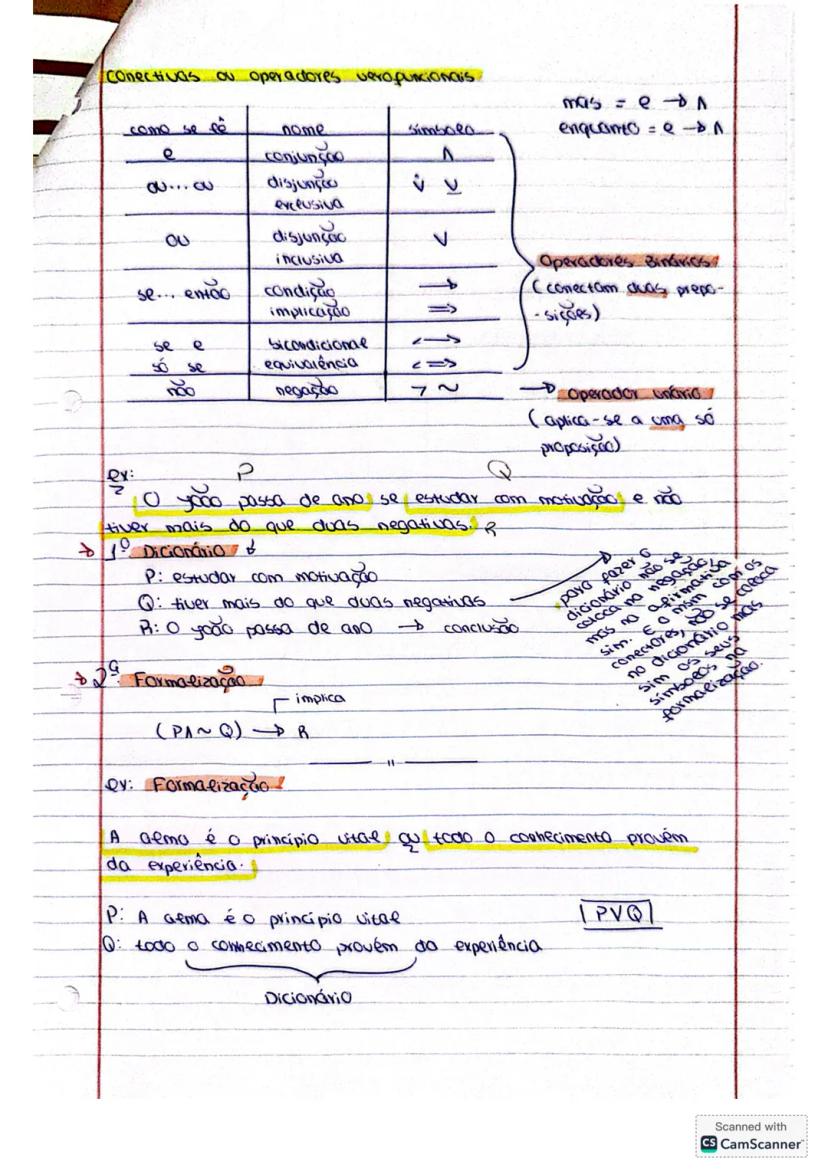 Conectivas ou operadores verofuncionais
mas = e → ∧
enquanto = e → ∧
como se lê | nome | símbolo
e | conjunção | ∧
ou... ou | disjunção exclusiva | v̇ ⊻
ou | disjunção inclusiva | ∨
se... então | condição implicação | → ⇒
se e só se | bicondicional equivalência | ↔ ⇔
não | negação | ¬ ~
Operadores Binários
(conectam duas prepo-
-sições)
→ operador unário
(aplica-se a uma só
proposição)
ex: P Q
O João passa de ano se estudar com motivação e não
tiver mais do que duas negativas. R
→ 1º Dicionário
P: estudar com motivação
Q: tiver mais do que duas negativas
R: O João passa de ano → conclusão
para fazer o
dicionário não se
coloca na negação
mas na afirmativa
sim. E o msm com os
conectores, não se coloca
no dicionário mas
sim os seus
símbolos na
formalização.
→ 2ª Formalização
implica
(P∧~Q) → R
ex: Formalização
A alma é o princípio vital ou todo o conhecimento provém
da experiência.
P: A alma é o princípio vital
PVQ
Q: todo o conhecimento provém da experiência
Dicionário
Scanned with
CS CamScanner